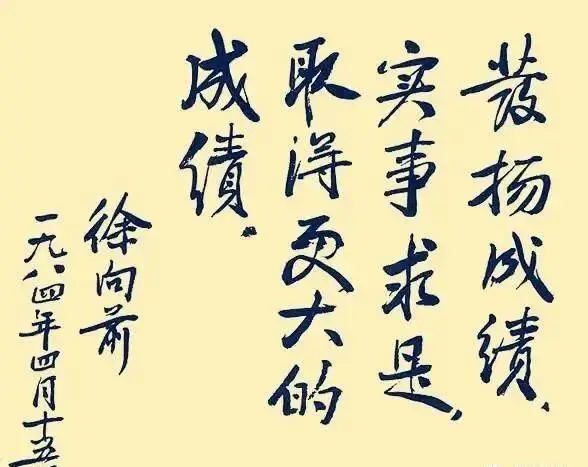 發扬成绩、
实事求是，
取得更大的
成绩．
徐向前
一九八四年四月十五